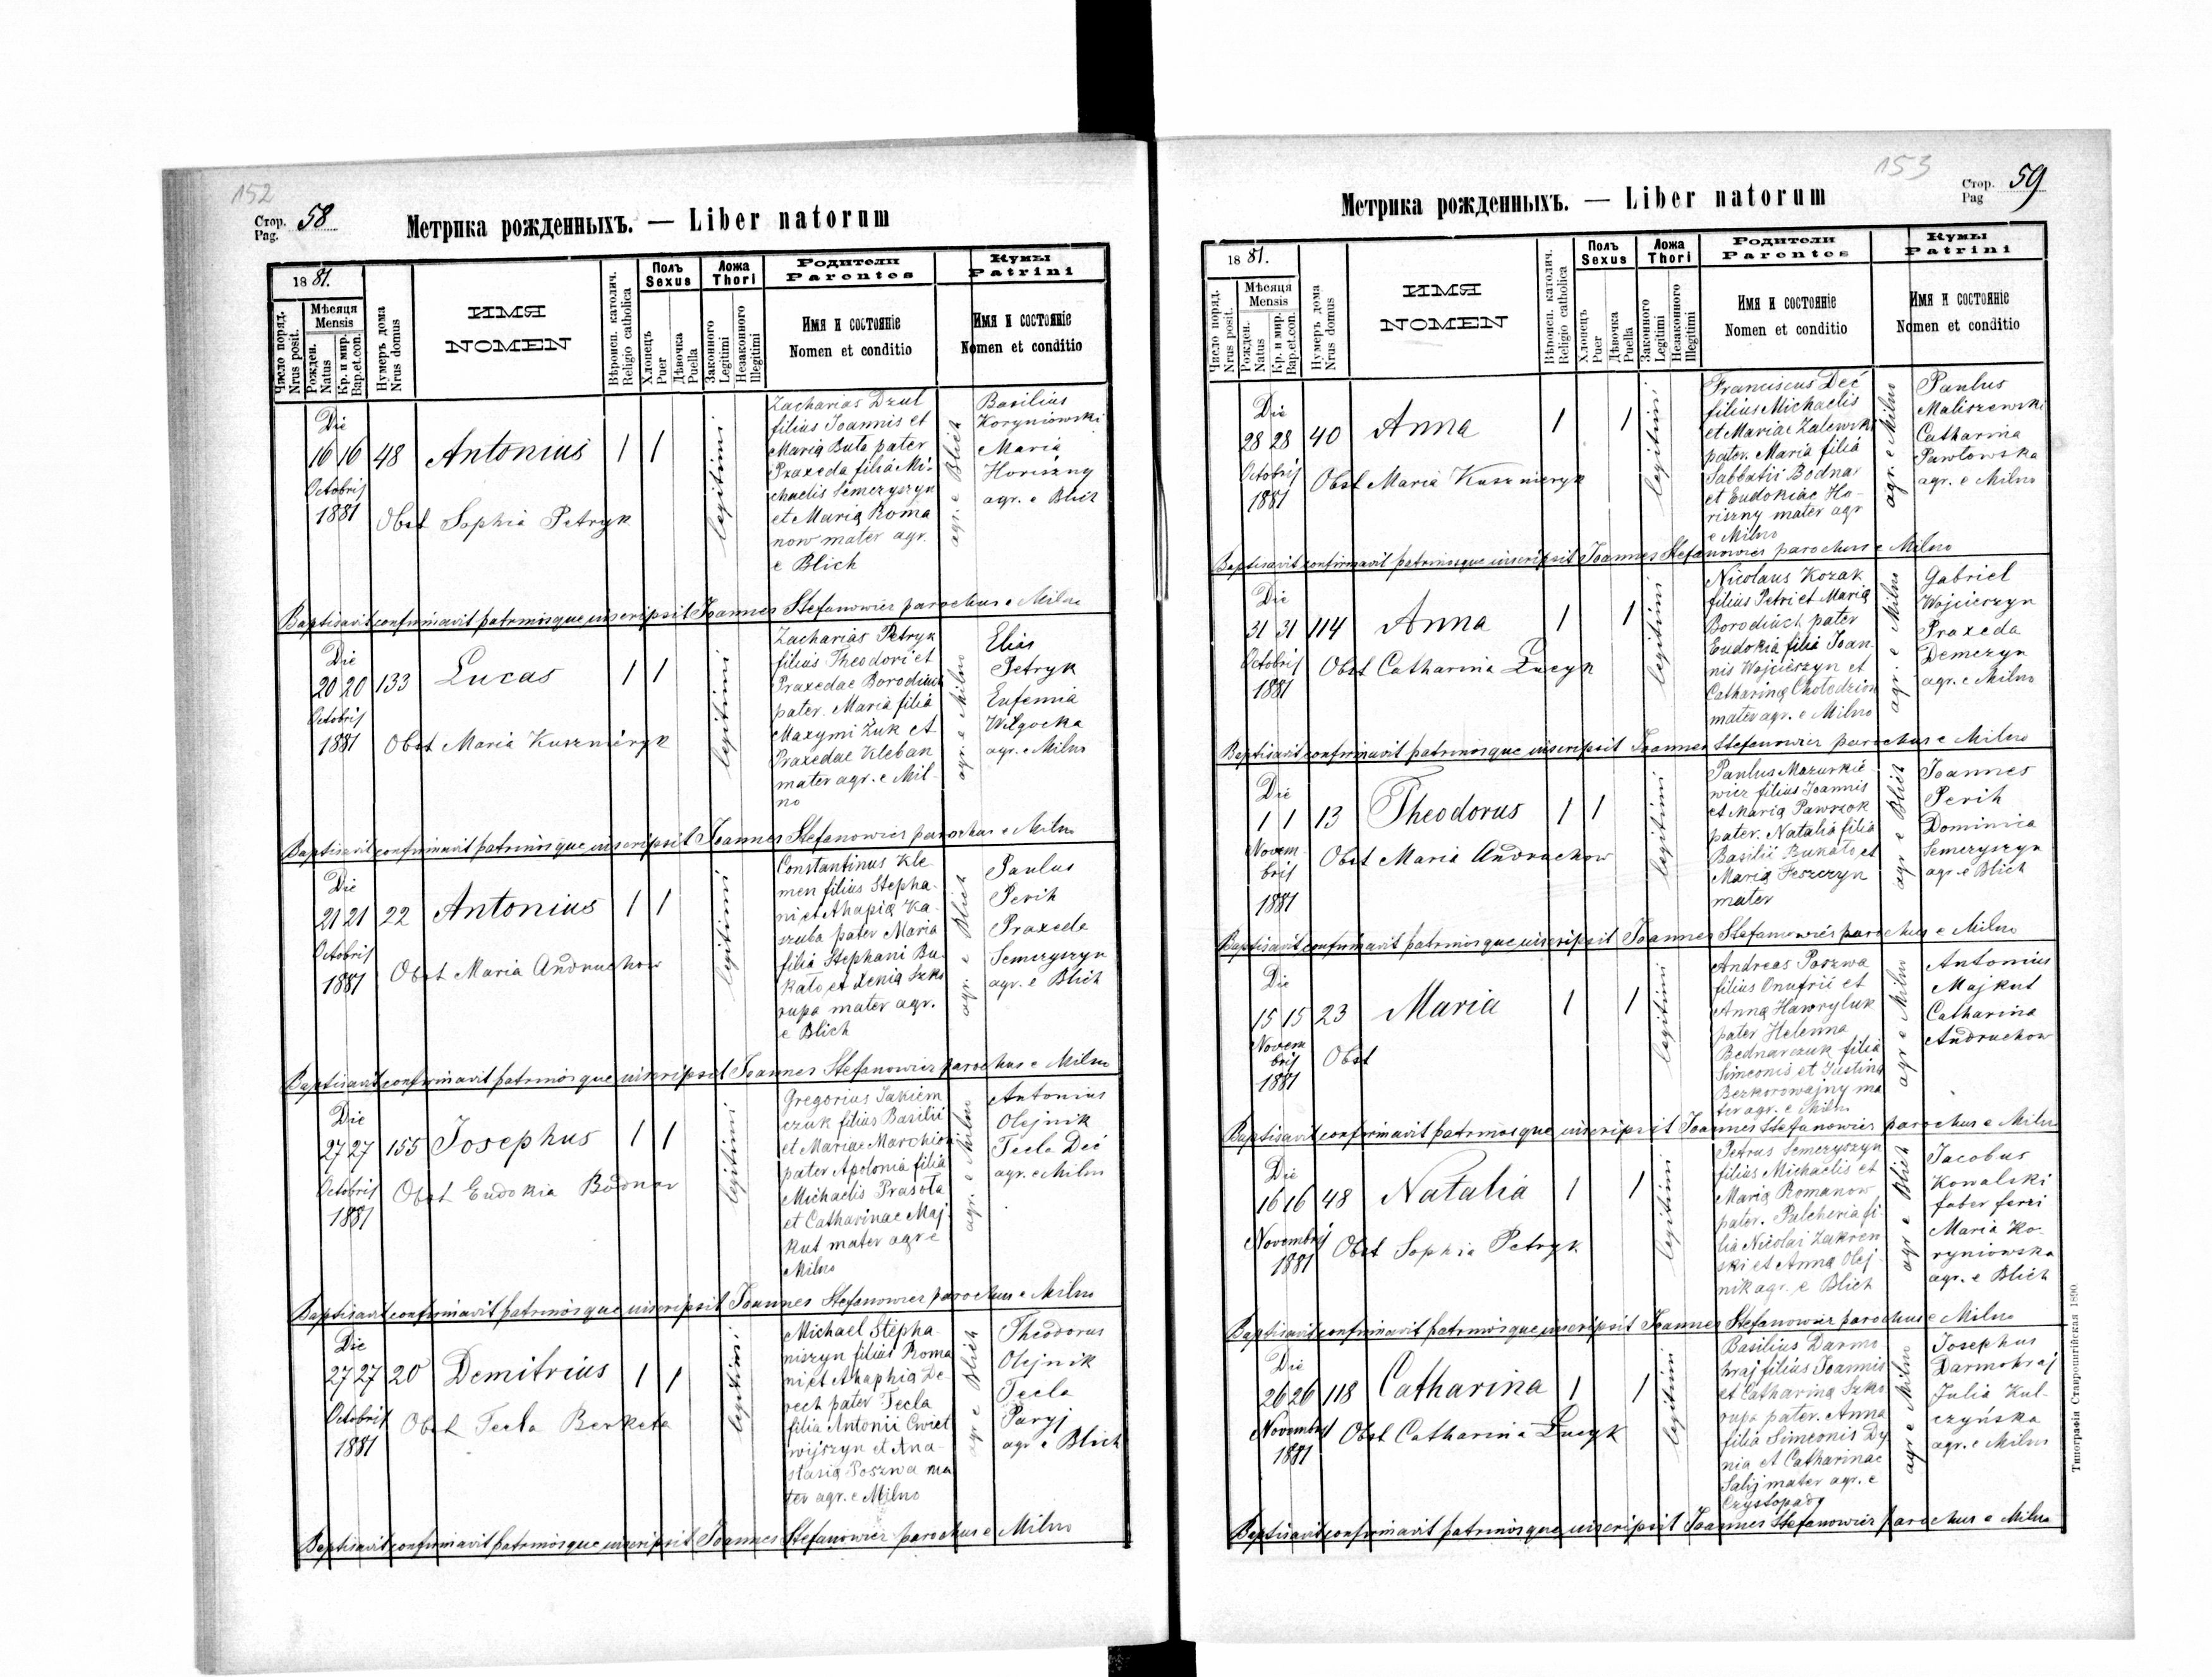 152
Стор. 58
Pag.
Метрика рожденныхъ. — Liber natorum
1881.
Число поряд.
Nrus posit.
Мѣсяця
Mensis
Рожден.
Natus
Кр. и мир.
Bap.et.con.
Нумеръ дома
Nrus domus
ИМЯ
NOMEN
Вѣроисп. католич.
Religio catholica
Полъ
Sexus
Хлопець
Puer
Дѣвочка
Puella
Ложа
Thori
Законного
Legitimi
Незаконного
Illegitimi
Родители
Parentes
Имя и состояніе
Nomen et conditio
Кумы
Patrini
Имя и состояніе
Nomen et conditio
Die
16 16 48 Antonius 1 1
Octobris
1881
Obst Sophia Petryk
legitimi
Zacharias Dzul
filius Joannis et
Maria Buta pater
Praxeda filia Mi-
chaelis Semczyszyn
et Maria Roma
now mater agr.
e Blich
agr. e Blich
Basilius
Koryniowski
Maria
Horiszny
agr. e Blich
Baptisavit confirmavit patrinosque inscripsit Joannes Stefanowicz parochus e Milno
Die
20 20 133 Lucas 1 1
Octobris
1881
Obst Maria Kusznieryk
legitimi
Zacharias Petryk
filius Theodori et
Praxedae Borodiuch
pater. Maria filia
Maxymi Żuk et
Praxedae Kleban
mater agr. e Mil-
no
agr. e Milno
Elias
Petryk
Eufemia
Wilgocka
agr. e Milno
Baptisavit confirmavit patrinosque inscripsit Joannes Stefanowicz parochus e Milno
Die
21 21 22 Antonius 1 1
Octobris
1881
Obst Maria Andruchow
legitimi
Constantinus Kle
men filius Stepha-
ni et Ahapia Ka-
szuba pater Maria
filia Stephani Bu-
kato et Xenia Szko
rupa mater agr.
e Blich
agr. e Blich
Paulus
Perih
Praxeda
Semczyszyn
agr. e Blich
Baptisavit confirmavit patrinosque inscripsit Joannes Stefanowicz parochus e Milno
Die
27 27 155 Josephus 1 1
Octobris
1881
Obst Eudokia Bodnar
legitimi
Gregorius Jakiem
czuk filius Basilii
et Mariae Marchion
pater Apolonia filia
Michaelis Prasota
et Catharinae Maj
kut mater agr e
Milno
agr. e Milno
Antonius
Olejnik
Tecla Deć
agr. e Milno
Baptisavit confirmavit patrinosque inscripsit Joannes Stefanowicz parochus e Milno
Die
27 27 20 Demitrius 1 1
Octobris
1881
Obst Tecla Berketa
legitimi
Michael Stepha-
niszyn filius Roma
ni et Ahaphia De-
rech pater Tecla
filia Antonii Cwiet
wijszyn et Ana-
stasia Poszwa ma
ter agr. e Milno
agr e Blich
Theodorus
Olejnik
Tecla
Paryj
agr e Blich
Baptisavit confirmavit patrinosque inscripsit Joannes Stefanowicz parochus e Milno
153
Стор. 59
Pag
Метрика рожденныхъ. — Liber natorum
1881.
Число поряд.
Nrus posit.
Мѣсяця
Mensis
Рожден.
Natus
Кр. и мир.
Bap.et.con.
Нумеръ дома
Nrus domus
ИМЯ
NOMEN
Вѣроисп. католич.
Religio catholica
Полъ
Sexus
Хлопець
Puer
Дѣвочка
Puella
Ложа
Thori
Законного
Legitimi
Незаконного
Illegitimi
Родители
Parentes
Имя и состояніе
Nomen et conditio
Кумы
Patrini
Имя и состояніе
Nomen et conditio
Die
28 28 40 Anna 1 1
Octobris
1881
Obst Maria Kusznieryk
legitimi
Franciscus Deć
filius Michaelis
et Mariae Zalewski
pater. Maria filia
Sabbatii Bodnar
et Eudokiae Ho-
riszny mater agr
e Milno
agr. e Milno
Paulus
Maliszewski
Catharina
Pawłowska
agr. e Milno
Baptisavit confirmavit patrinosque inscripsit Joannes Stefanowicz parochus e Milno
Die
31 31 114 Anna 1 1
Octobris
1881
Obst Catharina Łucyk
legitimi
Nicolaus Kozak
filius Petri et Maria
Borodiuch pater
Eudokia filia Joan
nis Wojcieszyn et
Catharina Chołodzion
mater agr. e Milno
agr. e Milno
Gabriel
Wojcieszyn
Praxeda
Demczyn
agr. e Milno
Baptisavit confirmavit patrinosque inscripsit Joannes Stefanowicz parochus e Milno
Die
1 1 13 Theodorus 1 1
Novem-
bris
1881
Obst Maria Andruchow
legitimi
Paulus Mazurkie-
wicz filius Joannis
et Maria Pawrzok
pater. Natalia filia
Basilii Bukato et
Maria Feszczyn
mater
agr e Blich
Joannes
Perih
Dominica
Semczyszyn
agr. e Blich
Baptisavit confirmavit patrinosque inscripsit Joannes Stefanowicz parochus e Milno
Die
15 15 23 Maria 1 1
Novem
bris
1881
Obst
legitimi
Andreas Poszwa
filius Onufrii et
Anna Hawryluk
pater Helenna
Bednarczuk filia
Simeonis et Justina
Bezkorowajny ma
ter agr. e Milno
agr e Milno
Antonius
Majkut
Catharina
Andruchow
Baptisavit confirmavit patrinosque inscripsit Joannes Stefanowicz parochus e Milno
Die
16 16 48 Natalia 1 1
Novembris
1881
Obst Sophia Petryk
legitimi
Petrus Semczyszyn
filius Michaelis et
Maria Romanow
pater. Pulcheria fi-
lia Nicolai Zakrew
ski et Anna Olej
nik agr. e Blich
agr e Blich
Jacobus
Kowalski
faber ferri
Maria Ko-
ryniowska
agr. e Blich
Baptisavit confirmavit patrinosque inscripsit Joannes Stefanowicz parochus e Milno
Die
26 26 118 Catharina 1 1
Novembris
1881
Obst Catharina Łucyk
legitimi
Basilius Darmo
hraj filius Joannis
et Catharina Szko
rupa pater. Anna
filia Simeonis Dy
nia et Catharinae
Salij mater agr. e
Czystopady
agr e Milno
Josephus
Darmohraj
Julia Kul-
czyńska
agr. e Milno
Baptisavit confirmavit patrinosque inscripsit Joannes Stefanowicz parochus e Milno
Типографія Ставропигійская 1890